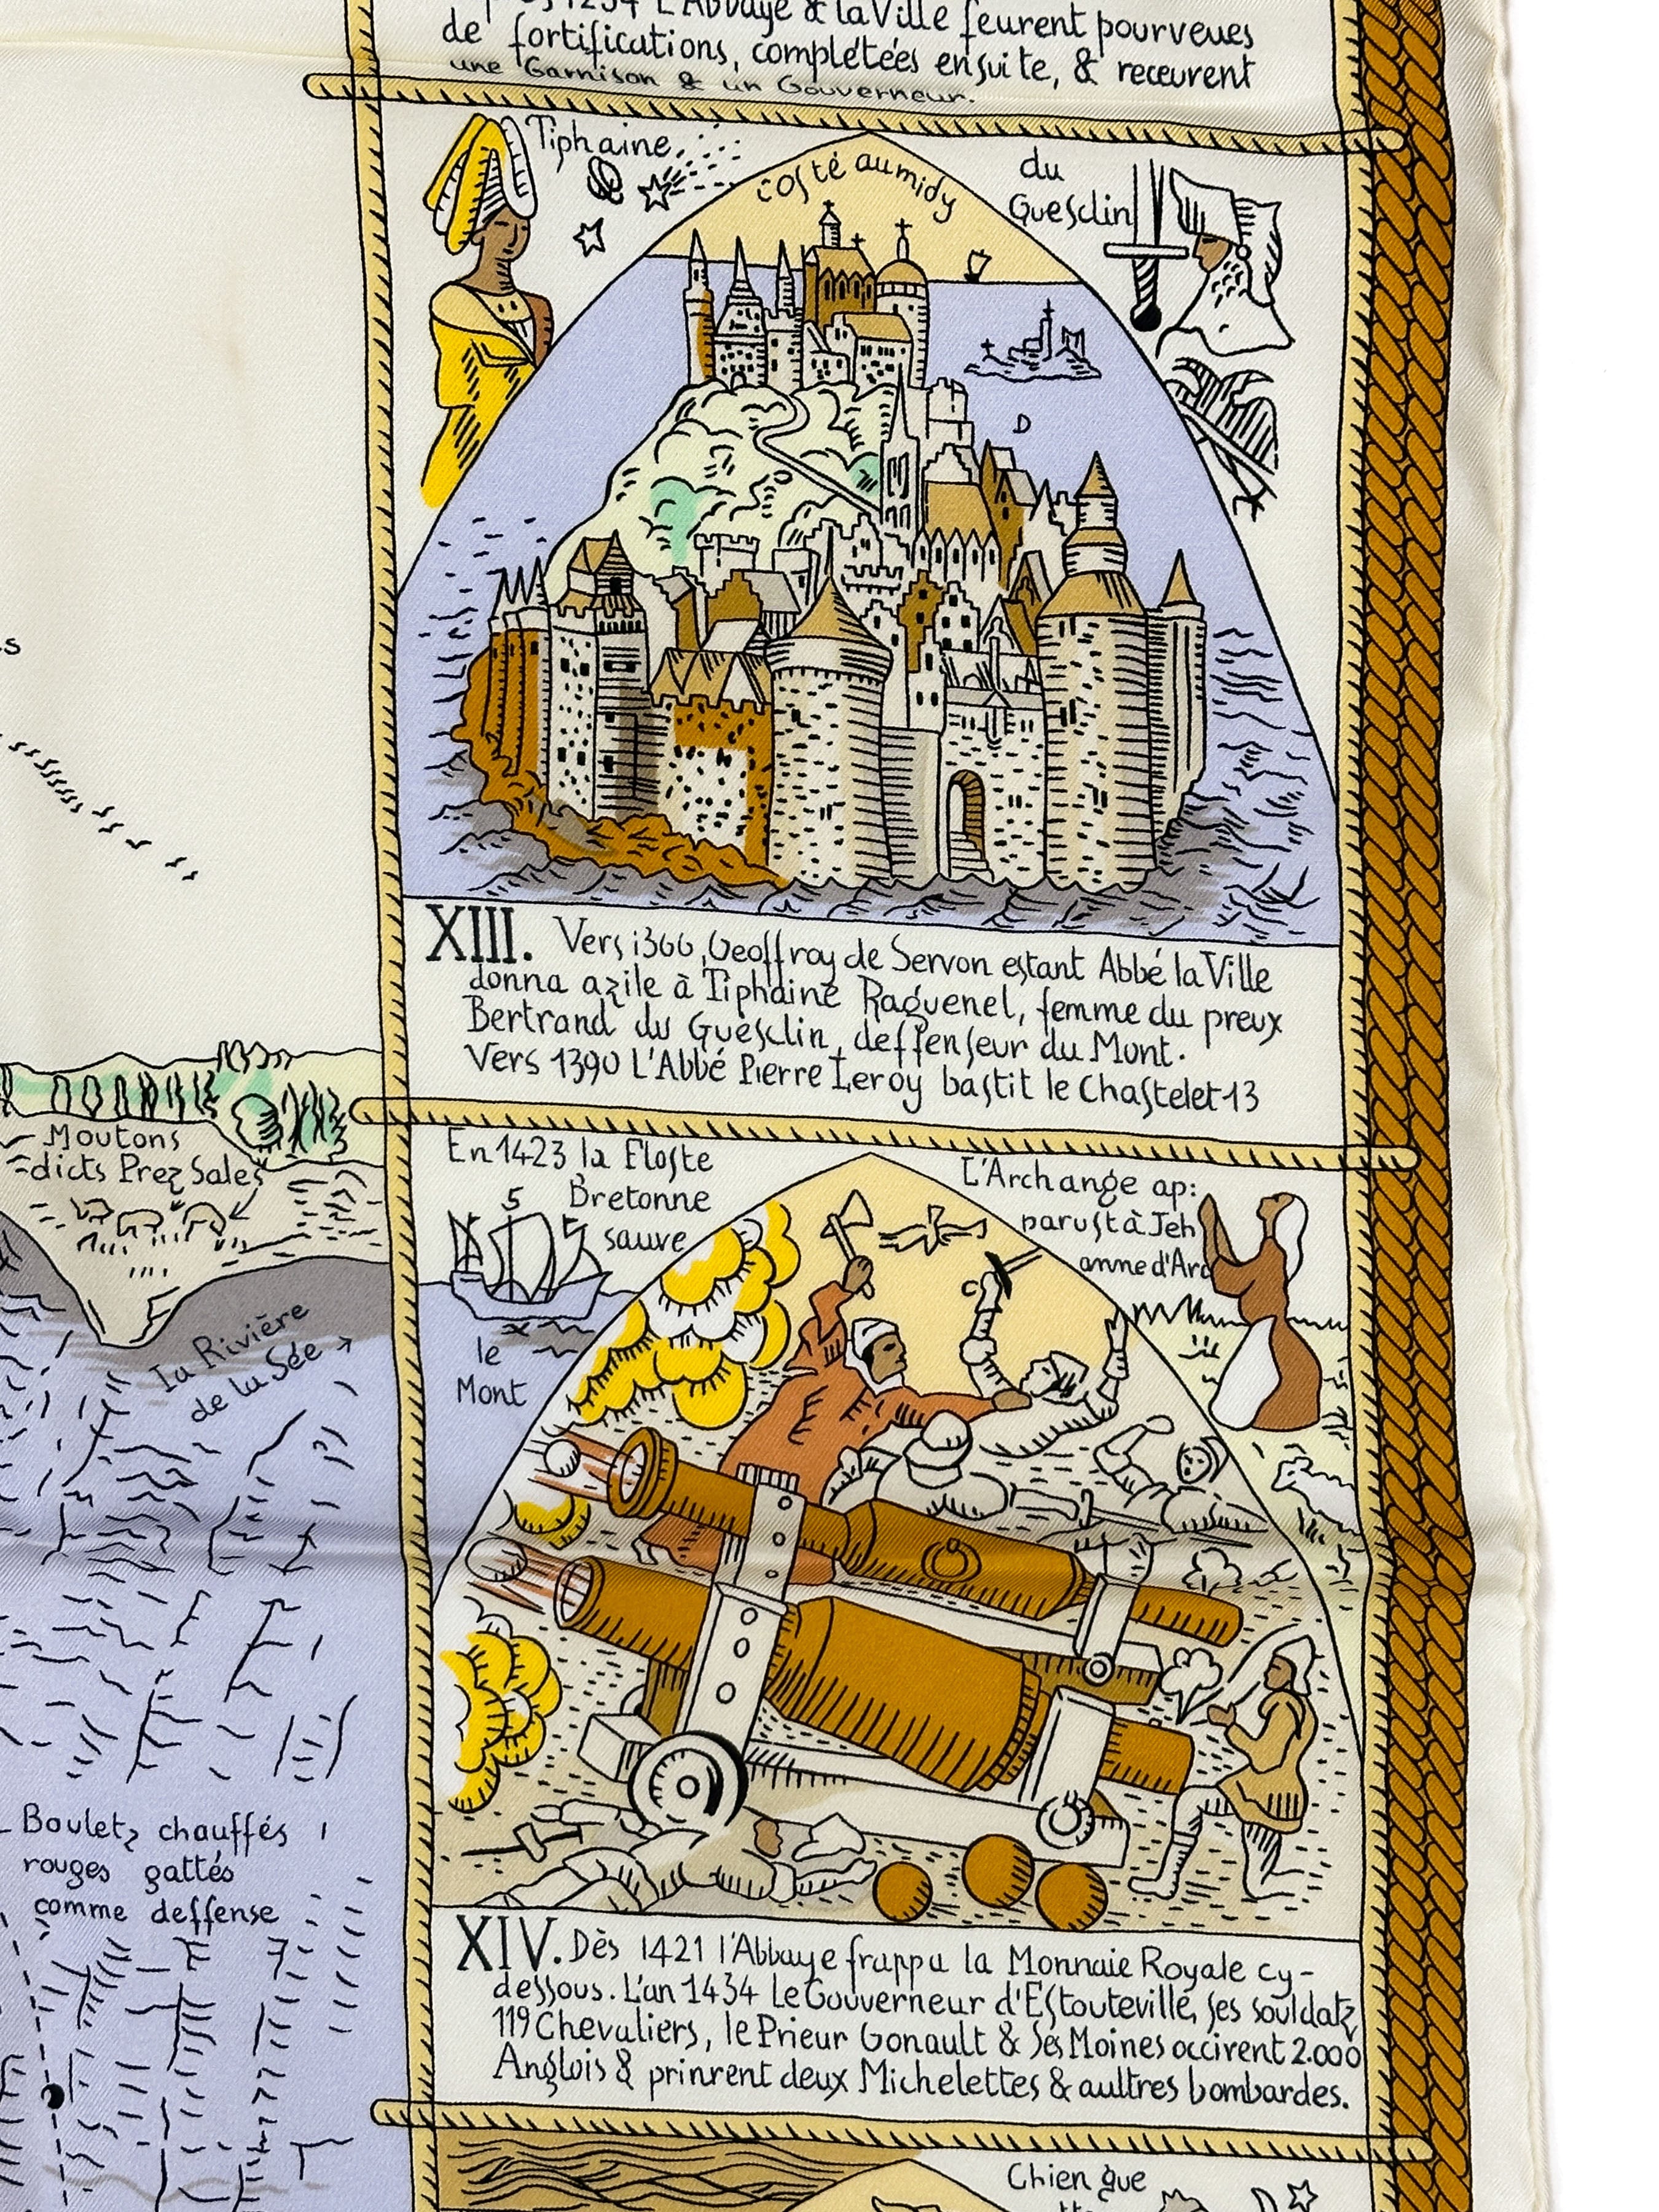 L'Abbaye & la Ville feurent pourveues
de fortifications, complétées ensuite, & receurent
une Garnison & un Gouverneur.
Tiphaine
du
Guesclin
costé au midy
D
XIII. Vers 1366, Geoffroy de Servon estant Abbé la Ville
donna azile à Tiphaine Raguenel, femme du preux
Bertrand du Guesclin, deffenseur du Mont.
Vers 1390 L'Abbé Pierre Leroy bastit le Chastelet 13
Moutons
dicts Prez Salés
la Rivière
de la Sée
Bouletz chauffés
rouges gattés
comme deffense
En 1423 la Floste
Bretonne
sauve
le
Mont
L'Archange ap:
parust à Jeh
anne d'Arc
XIV. Dès 1421 l'Abbaye frappa la Monnaie Royale cy-
dessous. L'an 1434 Le Gouverneur d'Estouteville, ses souldatz
119 Chevaliers, le Prieur Gonault & Ses Moines occirent 2.000
Anglois & prinrent deux Michelettes & aultres bombardes.
Chien que